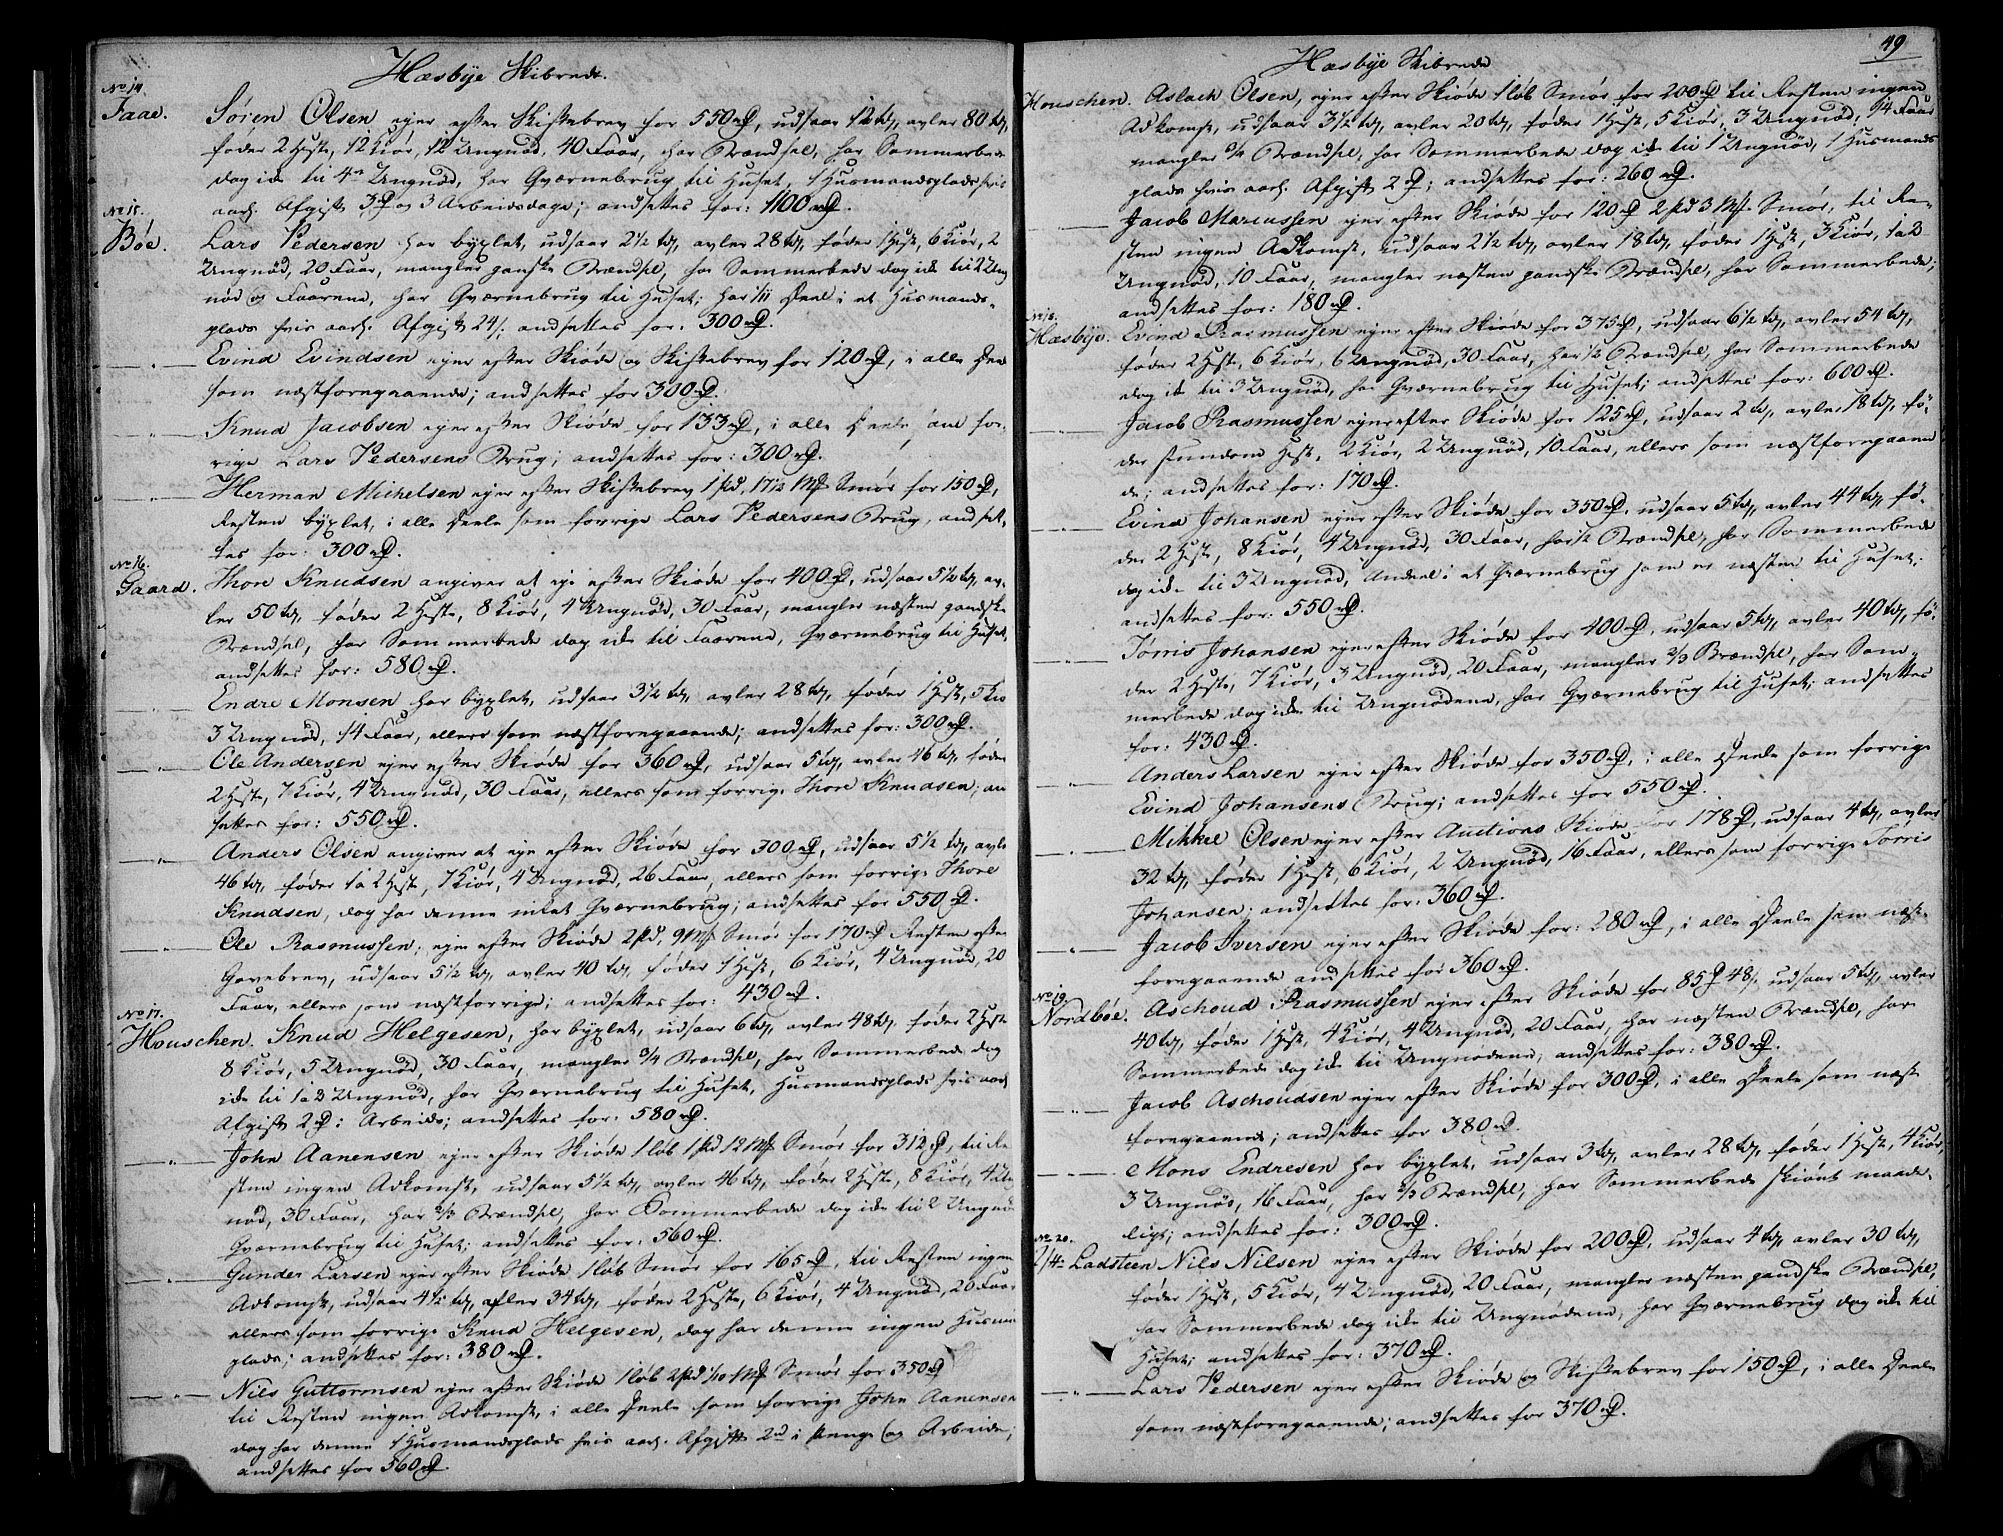 Hæsbÿe Skibrede.
No 14.
Faae. Søren Olsen ejer efter Skiftebrev for 550 rD, udsaar 12 td, avler 80 td,
føder 2 Heste, 12 Kiør, 12 Ungnød, 40 Faar, har Brændsel, har Sommerbede
dog ikke til 4re Ungnød, har Qværnebrug til Huset, 1 Husmandsplads hvis
aarl. Afgift 3 D og 3 Arbeidsdage; andsættes for: 1100 rD.
No 15.
Bøe. Lars Pedersen har byxlet, udsaar 2 1/2 td, avler 28 td, føder 1 Hest, 6 Kiør, 2
Ungnød, 20 Faar, mangler ganske Brændsel, har Sommerbede dog ikke til 2 Ung
nød og Faarene, har Qværnebrug til Huset; har 1/11 Deel i et Husmands-
plads hvis aarl. Afgift 24 /. andsættes for: 300 rD.
— " — Evind Evindsen ejer efter Skiøde og Skiftebrev for 120 rD, i alle Deele
som næstforegaaende; andsættes for 300 rD.
— " — Knud Jacobsen ejer efter Skiøde for 133 rD, i alle Deele som for-
rige Lars Pedersens Brug; andsættes for: 300 rD.
— " — Herman Michelsen ejer efter Skiftebrev 1 pd, 17 1/2 Mk Smør for 150 rD,
Resten byxlet, i alle Deele som forrige Lars Pedersens Brug, andsæt-
tes for: 300 rD.
No 16.
Gaard. Thore Knudsen angiver at eje efter Skiøde for 400 rD, udsaar 5 1/2 td, av-
ler 50 td, føder 2 Heste, 8 Kiør, 4 Ungnød, 30 Faar, mangler næsten gandske
Brændsel, har Sommerbede dog ikke til Faarene, Qværnebrug til Huset,
andsættes for: 580 rD.
— " — Endre Monsen har byxlet, udsaar 3 1/2 td, avler 28 td, føder 1 Hest, 5 Kiø
3 Ungnød, 14 Faar, ellers som næstforegaaende; andsættes for: 300 rD.
— " — Ole Andersen ejer efter Skiøde for 360 rD, udsaar 5 td, avler 46 td, føder
2 Hest, 7 Kiør, 4 Ungnød, 30 Faar, ellers som forrige Thore Knudsen; an
sættes for: 550 rD.
— " — Anders Olsen angiver at eje efter Skiøde for 300 rD, udsaar 5 1/2 td, avle
46 td, føder 1 a 2 Hest, 7 Kiør, 4 Ungnød, 26 Faar, ellers som forrige Thore
Knudsen, dog har denne intet Qværnebrug; andsættes for 550 rD.
— " — Ole Rasmussen, ejer efter Skiøde 2 pd, 9 Mk Smør for 170 rD Resten efter
Gavebrev, udsaar 5 1/2 td, avler 40 td, føder 1 Hest, 6 Kiør, 4 Ungnød, 20
Faar, ellers som næstforrige; andsættes for: 430 rD.
No 17.
Houschen. Knud Helgesen, har byxlet, udsaar 6 td, avler 48 td, føder 2 Heste
8 Kiør, 5 Ungnød, 30 Faar, mangler 3/4 Brændsel, har Sommerbede dog
ikke til 1 a 2 Ungnød, har Qværnebrug til Huset, Husmandsplads hvis aarl
Afgift 2 D i Arbeide; andsættes for: 580 rD.
— " — John Aanensen ejer efter Skiøde 1 løb 1 pd 12 Mk Smør for 312 D, til Re
sten ingen Adkomst, udsaar 5 1/2 td, avler 46 td, føder 2 Heste, 8 Kiør, 4 Ung
nød, 30 Faar, har 2/3 Brændsel, har Sommerbede dog ikke til 2 Ungnød
Qværnebrug til Huset; andsættes for: 560 rD.
— " — Gunder Larsen ejer efter Skiøde 1 løb Smør for 165 rD, til Resten ingen
Adkomst, udsaar 4 1/2 td, avler 34 td, føder 2 Heste, 6 Kiør, 4 Ungnød, 20 Faar
ellers som forrige Knud Helgesen, dog har denne ingen Husman
plads; andsættes for: 380 rD.
— " — Niels Guttormsen ejer efter Skiøde 1 løb 2 pd 1/10 Mk Smør for 350 rD
til Resten ingen Adkomst, i alle Deele som forrige John Aanensen
dog har denne 1 Husmandsplads hvis aarl. Afgift 2 rD i Penge og Arbeide;
andsættes for 560 rD.
49
Hæsbÿe Skibrede
Houschen. Aslach Olsen, ejer efter Skiøde 1 løb Smør for 200 rD til Resten ingen
Adkomst, udsaar 3 1/2 td, avler 20 td, føder 1 Hest, 5 Kiør, 3 Ungnød, 14 Faar
mangler 3/4 Brændsel, har Sommerbede dog ik til 1 Ungnød, 1 Husmands
plads hvis aarl. Afgift 2 D; andsættes for: 260 rD.
— " — Jacob Marcussen ejer efter Skiøde for 120 rD 2 pd 3 Mk. Smør, til Re-
sten ingen Adkomst, udsaar 2 1/2 td, avler 18 td, føder 1 Hest, 3 Kiør, 1 a 2
Ungnød, 10 Faar, mangler næsten gandske Brændsel, har Sommerbede;
andsættes for: 180 rD.
No 18.
Hæsbÿe. Evind Rasmussen ejer efter Skiøde for 375 rD, udsaar 6 1/2 td, avler 54 td,
føder 2 Heste, 6 Kiør, 6 Ungnød, 30 Faar, har 1/2 Brændsel, har Sommerbede
dog ik til 3 Ungnød, har Qværnebrug til Huset; andsættes for: 600 rD.
— " — Jacob Rasmussen ejer efter Skiøde for 125 rD, udsaar 2 td, avler 18 td, fø-
der stundom Hest, 2 Kiør, 2 Ungnød, 10 Faar, ellers som næstforegaaen
de; andsættes for: 170 rD.
— " — Evind Johansen ejer efter Skiøde for 350 rD, udsaar 5 td, avler 44 td, fø-
der 2 Hest, 8 Kiør, 4 Ungnød, 30 Faar, har 1/2 Brændsel, har Sommerbede
dog ikke til 3 Ungnød, Andeel i et Qværnebrug som er næsten til Huset;
andsættes for: 550 rD.
— " — Tørris Johansen ejer efter Skiøde for 400 rD, udsaar 5 td, avler 40 td, fø-
der 2 Heste, 7 Kiør, 3 Ungnød, 20 Faar, mangler 2/3 Brændsel, har Som-
merbede dog ikke til Ungnødene, har Qværnebrug til Huset; andsættes
for: 430 rD.
— " — Anders Larsen ejer efter Skiøde for 350 rD, i alle Deele som forrige
Evind Johansens Brug; andsættes for 550 rD.
— " — Mikkel Olsen ejer efter Auctions Skiøde for 178 rD, udsaar 4 td, avler
32 td, føder 1 Hest, 6 Kiør, 2 Ungnød, 16 Faar, ellers som forrige Tørris
Johansen; andsættes for: 360 rD.
— " — Jacob Iversen ejer efter Skiøde for: 280 rD, i alle Deele som næst-
foregaaende andsættes for 360 rD.
No 19.
Nordbøe. Aschoud Rasmussen ejer efter Skiøde for 85 D 48 /. udsaar 5 td, avler
40 td, føder 1 Hest, 4 Kiør, 4 Ungnød, 20 Faar, har næsten Brændsel, har
Sommerbede dog ik til Ungnødene; andsættes for: 380 rD.
— " — Jacob Aschoudsen ejer efter Skiøde for 300 rD, i alle Deele som næst
foregaaende; andsættes for 380 rD.
— " — Mons Endresen har byxlet, udsaar 3 td, avler 28 td, føder 1 Hest, 4 Kiør,
3 Ungnød, 16 Faar, har 2/3 Brændsel, har Sommerbede skiønt maade-
ligt; andsættes for: 300 rD.
No 20.
Ladsteen Nils Nilsen ejer efter Skiøde for 200 rD, udsaar 4 td, avler 30 td,
føder 1 Hest, 5 Kiør, 4 Ungnød, 20 Faar, mangler næsten gandske Brændsel,
har Sommerbede dog ikke til Ungnødene, har Qværnebrug dog ikke til
Huset; andsættes for: 370 rD.
— " — Lars Pedersen ejer efter Skiøde og Skiftebrev for 150 rD, i alle Deele
som næstforegaaende; andsættes for 370 rD.